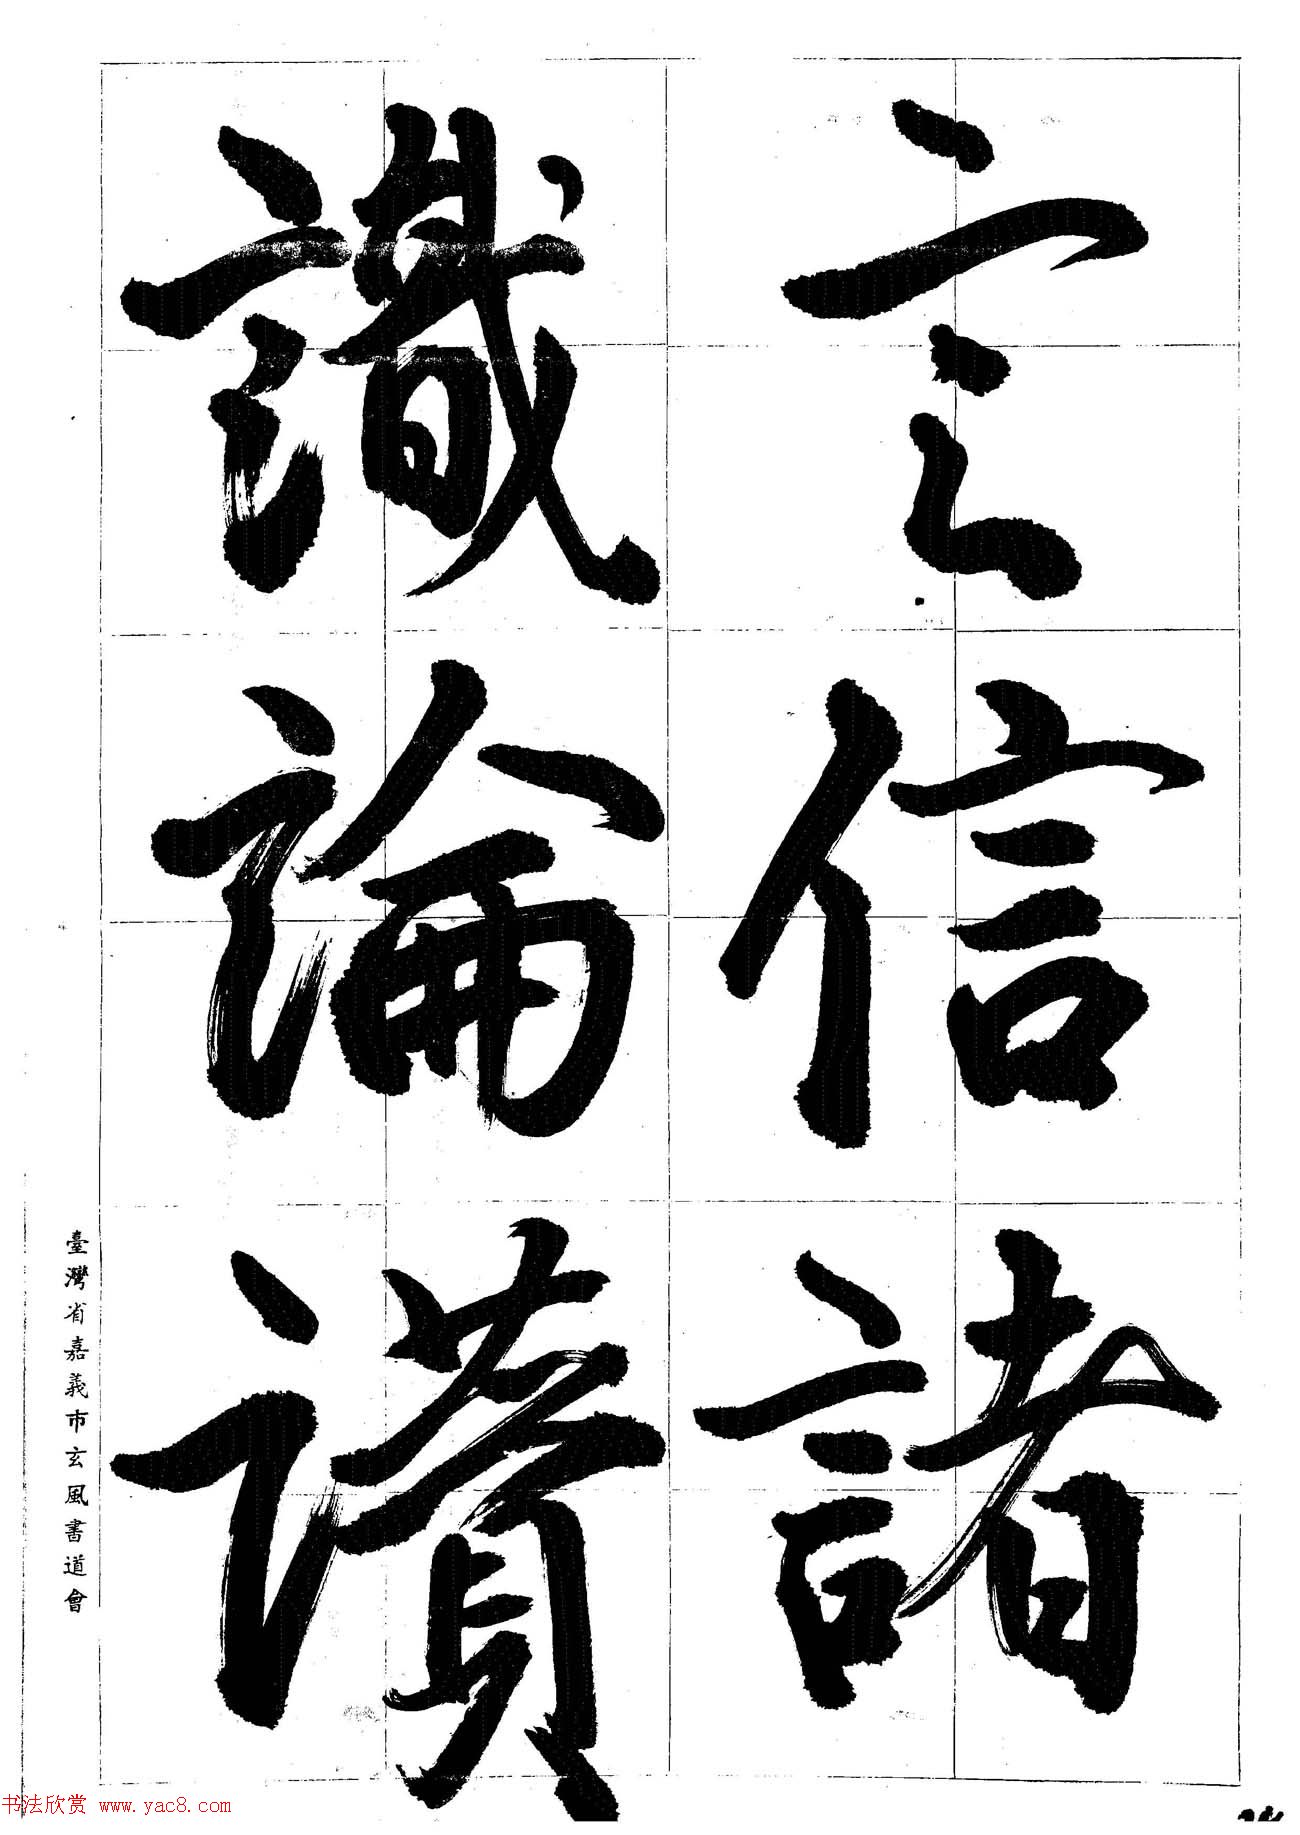 言信諸
識論讀
臺灣省嘉義市玄風書道會
书法欣赏 www.yac8.com